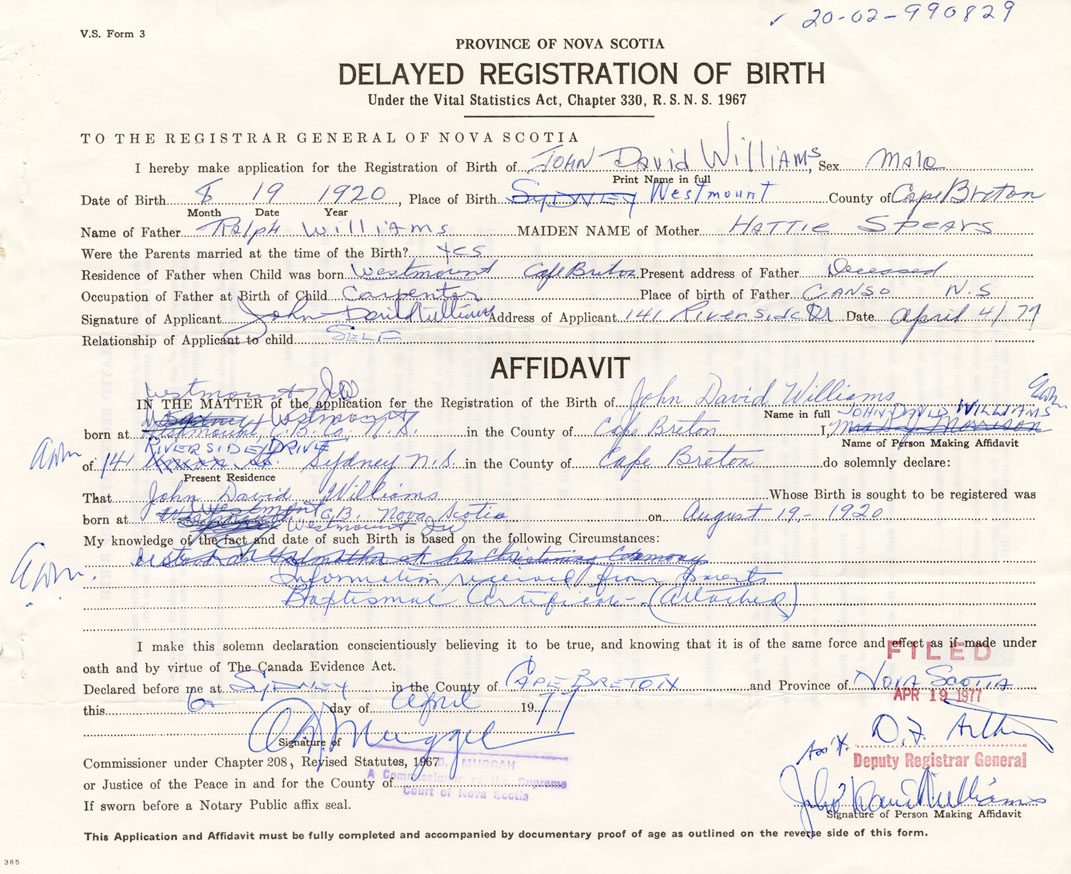 V.S. Form 3
✓ 20-02-990829
PROVINCE OF NOVA SCOTIA
DELAYED REGISTRATION OF BIRTH
Under the Vital Statistics Act, Chapter 330, R. S. N. S. 1967
TO THE REGISTRAR GENERAL OF NOVA SCOTIA
I hereby make application for the Registration of Birth of JOHN David WILLIAMS, Sex Male
Print Name in full
Date of Birth 8 19 1920, Place of Birth SYDNEY Westmount County of Cape Breton
Month Date Year
Name of Father Ralph Williams MAIDEN NAME of Mother HATTIE SPEARS
Were the Parents married at the time of the Birth? Yes
Residence of Father when Child was born Westmount Cape Breton Present address of Father Deceased
Occupation of Father at Birth of Child Carpenter Place of birth of Father CANSO N.S
Signature of Applicant John David Williams Address of Applicant 141 Riverside Dr Date April 4/77
Relationship of Applicant to child SELF
AFFIDAVIT
Westmount JW
IN THE MATTER of the application for the Registration of the Birth of John David Williams
Name in full JOHN DAVID WILLIAMS
born at Westmount in the County of Cape Breton I,
Name of Person Making Affidavit
RIVERSIDE DRIVE
of 141 Sydney N.S. in the County of Cape Breton do solemnly declare:
Present Residence
That John David Williams Whose Birth is sought to be registered was
Westmount
born at C.B. Nova Scotia on August 19, - 1920
Westmount JW
My knowledge of the fact and date of such Birth is based on the following Circumstances:
at the Christening Ceremony
Information received from Parents
Baptismal Certificate - (Attached)
I make this solemn declaration conscientiously believing it to be true, and knowing that it is of the same force and effect as if made under
oath and by virtue of The Canada Evidence Act.
FILED
Declared before me at SYDNEY in the County of CAPE BRETON and Province of NOVA SCOTIA
APR 19 1977
this 6 day of April 1977
Signature of
Commissioner under Chapter 208, Revised Statutes, 1967
D. MUGGAH
A Commissioner of the Supreme
Court of Nova Scotia
or Justice of the Peace in and for the County of
If sworn before a Notary Public affix seal.
Ass't.
Deputy Registrar General
John David Williams
Signature of Person Making Affidavit
This Application and Affidavit must be fully completed and accompanied by documentary proof of age as outlined on the reverse side of this form.
385